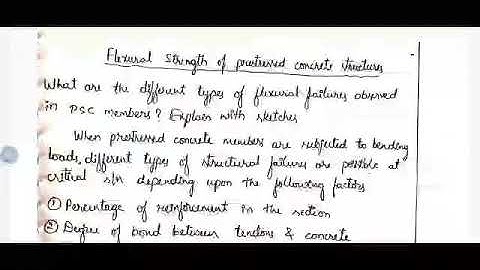 Flexural Strength of prestressed concrete structures
What are the different types of flexural failures observed
in PSC members? Explain with sketches
When prestressed concrete members are subjected to bending
loads, different types of structural failures are possible at
critical s/n depending upon the following factors
① Percentage of reinforcement in the section
② Degree of bond between tendons & concrete